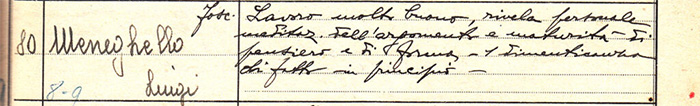 80 Meneghello Fosc. Lavoro molto buono, rivela personale
meditaz. dell'argomento e maturità di
pensiero e di forma, - 1 dimenticanza
8-9 Luigi di fatto in principio -